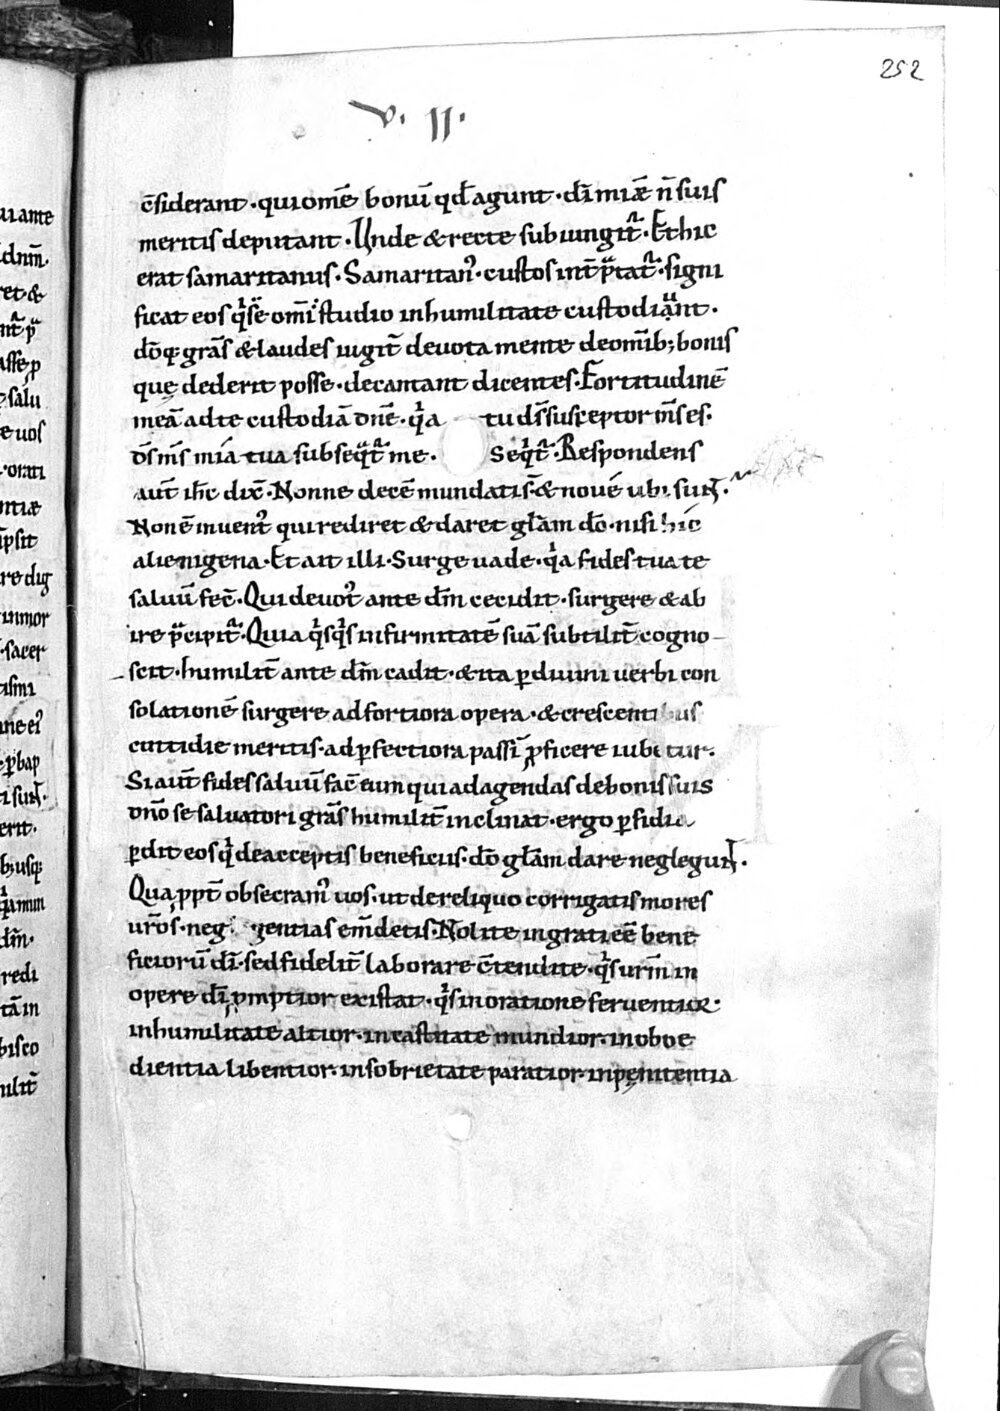 252
V. II.
c̄siderant · qui om̄e bonū qd̄ agunt · dī mīæ n̄ suis
meritis deputant · Unde & recte subiungit᷑ · Et hic
erat samaritanus · Samaritan᾿ · custos int̄p̄tat᷑ · signi
ficat eos qͥ se om̄i studio in humilitate custodiunt ·
dōq; grās & laudes iugit̄ deuota mente de om̄ib; bonis
quę dederit posse · decantant dicentes · Fortitudinē
meā ad te custodiā dn̄e · qͥa tu ds̄ susceptor m̄s es ·
ds̄ m̄s mīa tua subseq̄t᷑ me · Seqͥt᷑ · Respondens
aut̄ ih̄c dix̄ · Nonne decē mundati s̄ · & nouē ubi sunt ·
Non ē inuent᾿ qui rediret & daret gl̄am dō · nisi hic
alienigena · Et ait illi · Surge uade · qͥa fides tua te
saluū fec̄ · Qui deuot᾿ ante dn̄m cecidit · surgere & ab
ire p̄cipit᷑ · Quia qͥsqͥs infirmitatē suā subtilit̄ cogno-
scit · humilit̄ ante dn̄m cadit · & ita p̱ diuini uerbi con
solationē surgere ad fortiora opera · & crescentibus
cottidie meritis · ad p̱fectiora passī p̱ficere iubetur ·
Si aut̄ fides saluū fac̄ eum qui ad agendas de bonis suis
dn̄o se saluatori grās humilit̄ inclinat · ergo p̱fidia
p̱dit eos qͥ de acceptis beneficiis · dō gl̄am dare neglegunt ·
Qua ppt̄ obsecram᾿ uos · ut de reliquo corrigatis mores
ur̄os · neg gentias em̄detis · Nolite ingrati ēe bene
ficiorū dī · sed fidelit̄ laborare c̄tendite · qͥs ur̄m in
opere dī p̱mptior existat · qͥs in oratione feruentior ·
in humilitate altior · in castitate mundior · in oboe
dientia libentior · in sobrietate paratior · in pęnitentia